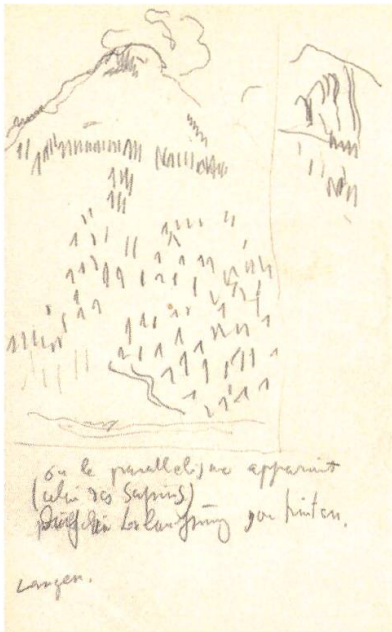 où le parallélisme apparait
(celui des Sapins)
von hinten.
Langen.